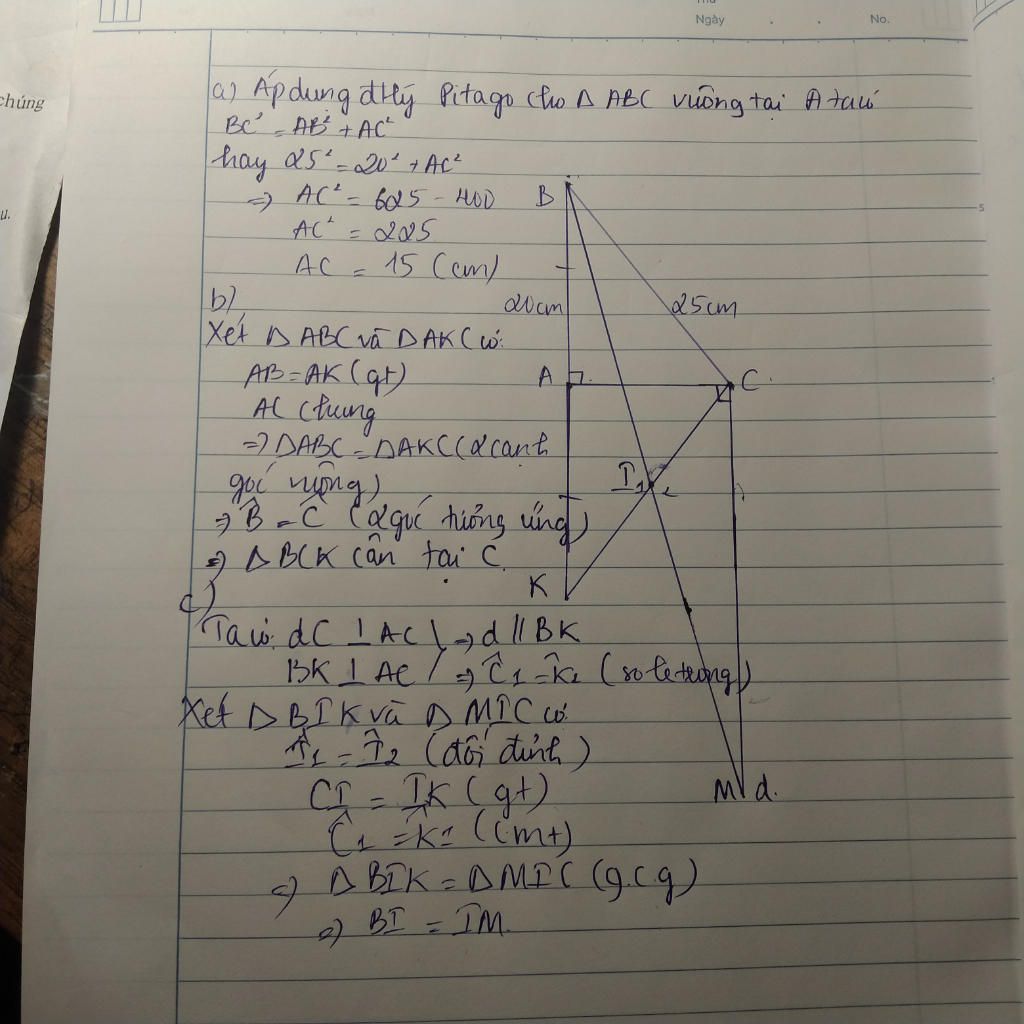 Thứ
Ngày . . No.
chúng
u.
a) Áp dụng đlý Pitago cho Δ ABC vuông tại A ta có
BC² = AB² + AC²
hay 25² = 20² + AC²
=> AC² = 625 - 400
AC² = 225
AC = 15 (cm)
b)
Xét Δ ABC và Δ AKC có:
AB = AK (gt)
AC chung
=> ΔABC = ΔAKC (2 cạnh
góc vuông)
=> B̂ = Ĉ (2 góc tương ứng)
=> Δ BCK cân tại C.
c)
Ta có: dC ⊥ AC } => d // BK
BK ⊥ AC } => Ĉ₁ = K̂₂ (so le trong)
Xét Δ BIK và Δ MIC có
Î₁ = Î₂ (đối đỉnh)
CI = IK (gt)
Ĉ₁ = K̂₁ (cmt)
=> Δ BIK = Δ MIC (g.c.g)
=> BI = IM.
B
20cm 25cm
A C
I 1 2
K
M d.
5